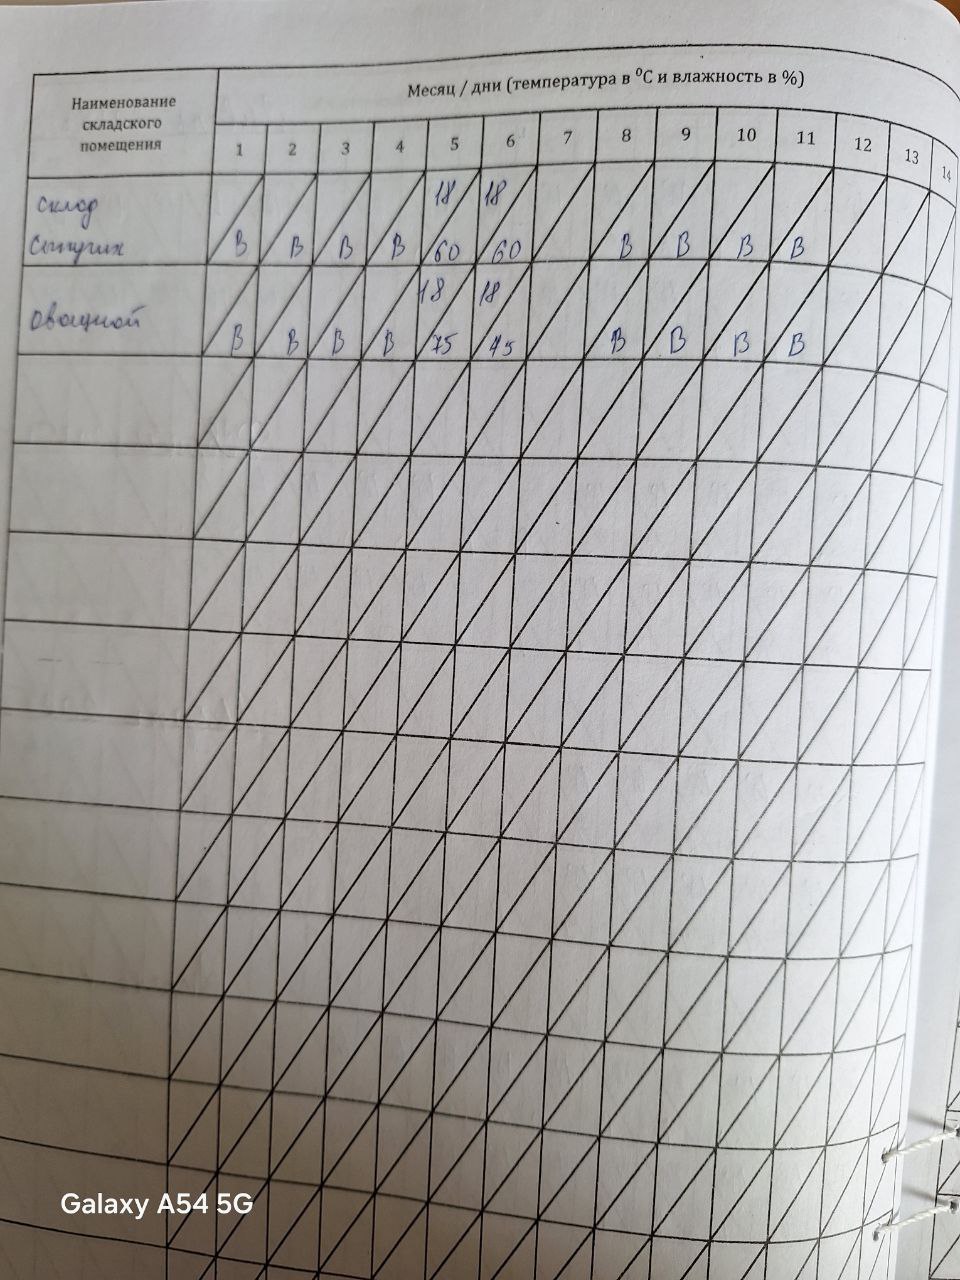 Месяц / дни (температура в ⁰С и влажность в %)
Наименование
складского
помещения
1 2 3 4 5 6 7 8 9 10 11 12 13 14
Склад
18 18
В В В В 60 60 В В В В
Овощной
18 18
В В В В 75 75 В В В В
Galaxy A54 5G